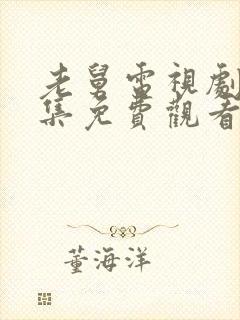 老舅電視劇
集免費觀看
董海洋